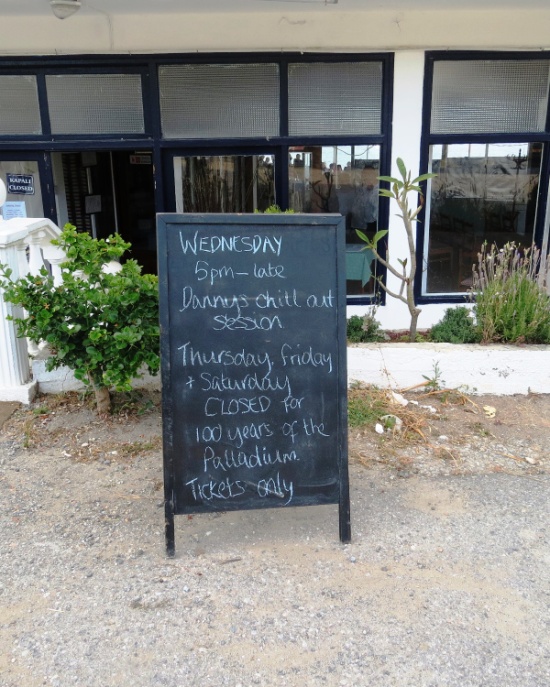 KAPALI
CLOSED
WEDNESDAY
5pm - late
Danny's chill out
session
Thursday, Friday
+ Saturday
CLOSED for
100 years of the
Palladium.
Tickets only